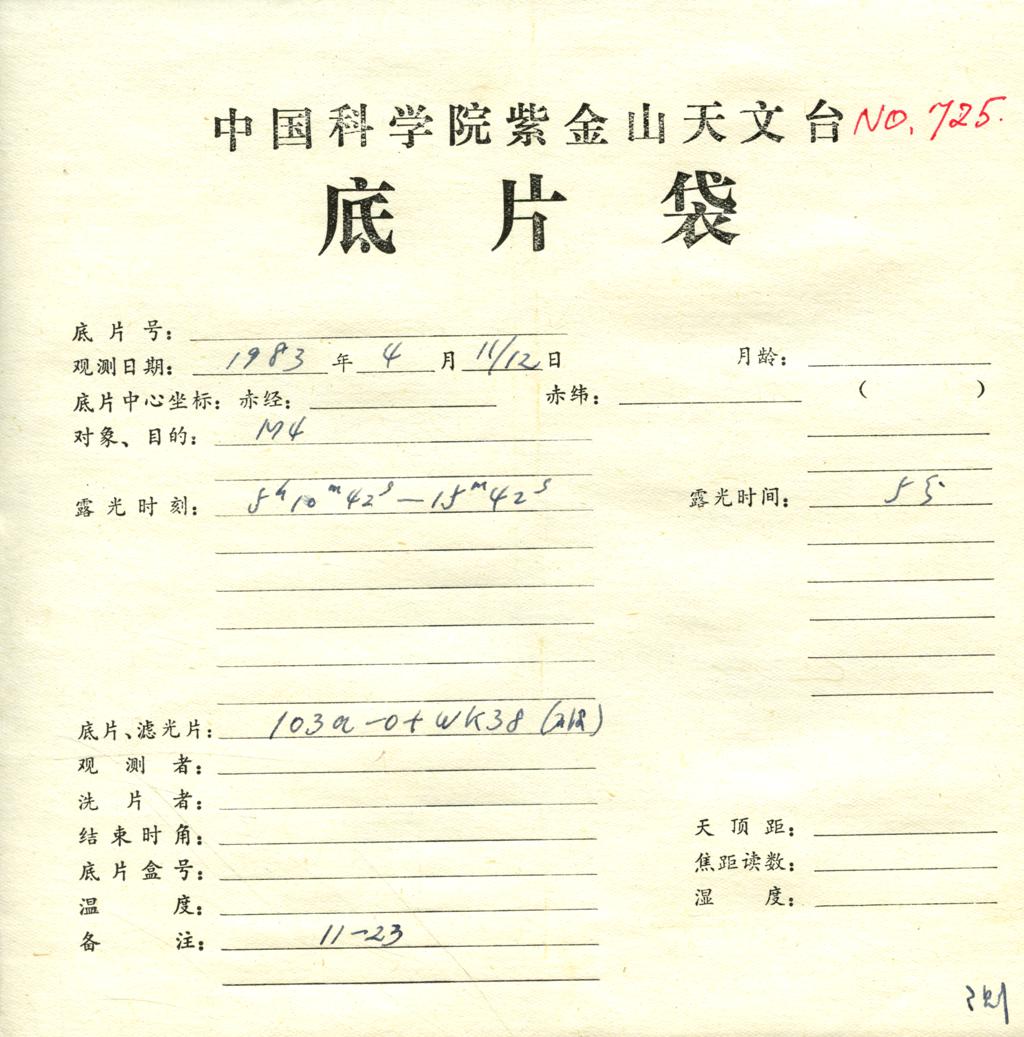 中国科学院紫金山天文台 NO. 725.
底片袋
底片号：
观测日期： 1983 年 4 月 11/12 日 月龄：
底片中心坐标：赤经： 赤纬： （ ）
对象、目的： M4
露光时刻： 5h10m42s—15m42s 露光时间： 5分
底片、滤光片： 103a-O+WK38
观测者：
洗片者：
结束时角： 天顶距：
底片盒号： 焦距读数：
温度： 湿度：
备注： 11-23